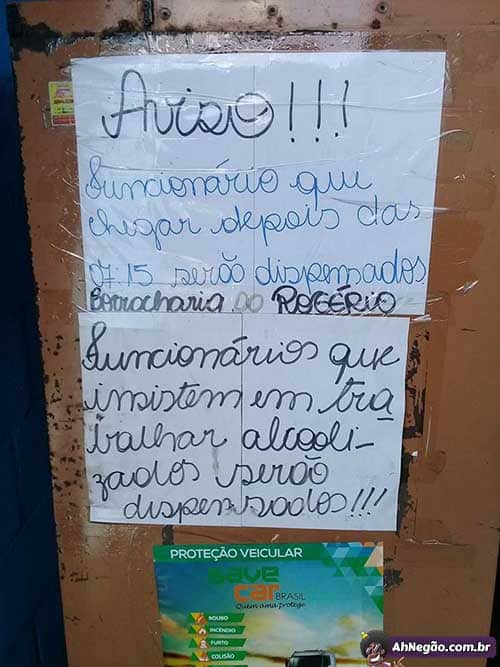 Aviso!!!
Funcionário que
chegar depois das
07:15 serão dispensados
Borracharia do ROGÉRIO
Funcionários que
insistem em tra
balhar alcooli-
zados serão
dispensados!!!
PROTEÇÃO VEICULAR
save
car BRASIL
Quem ama protege
ROUBO
INCÊNDIO
FURTO
COLISÃO
AhNegão.com.br